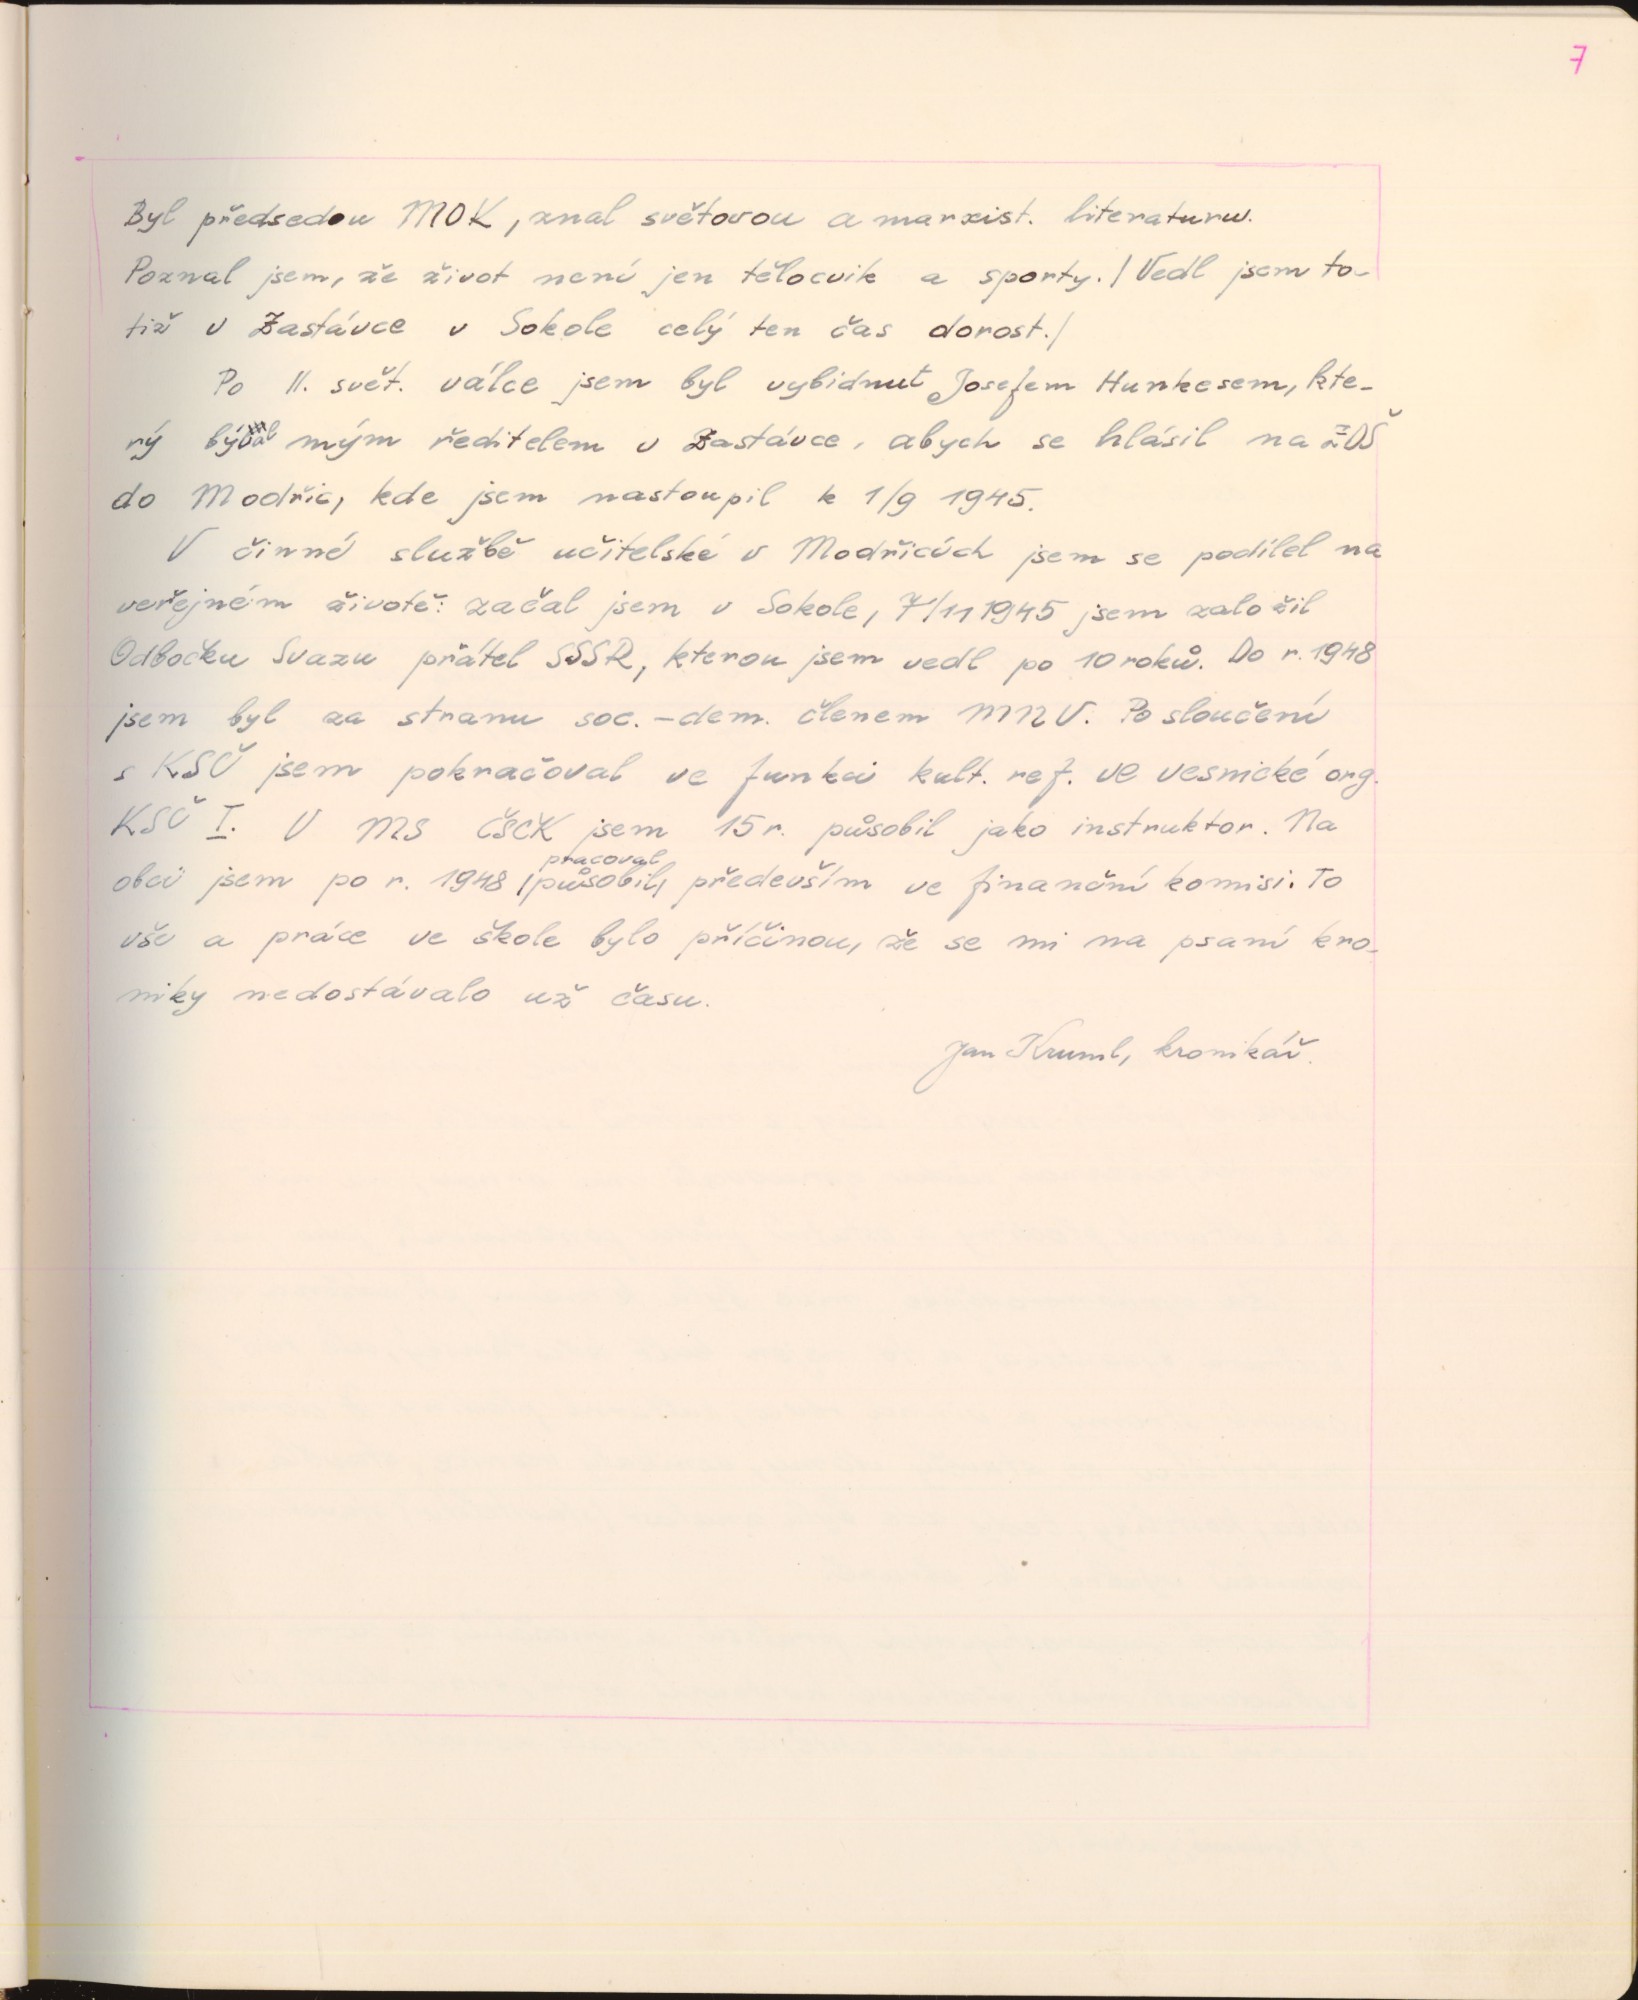 7
Byl předsedou MOK, znal světovou a marxist. literaturu.
Poznal jsem, že život není jen tělocvik a sporty. / Vedl jsem to-
tiž v Zastávce v Sokole celý ten čas dorost. /
Po II. svět. válce jsem byl vybídnut Josefem Hunkesem, kte-
rý býval mým ředitelem v Zastávce, abych se hlásil na ZDŠ
do Modřic, kde jsem nastoupil k 1/9 1945.
V činné službě učitelské v Modřicích jsem se podílel na
veřejném životě: začal jsem v Sokole, 7/11 1945 jsem založil
Odbočku Svazu přátel SSSR, kterou jsem vedl po 10 roků. Do r. 1948
jsem byl za stranu soc. - dem. členem MNV. Po sloučení
s KSČ jsem pokračoval ve funkci kult. ref. ve vesnické org.
KSČ I. V MS ČSČK jsem 15 r. působil jako instruktor. Na
pracoval
obci jsem po r. 1948 /působil/ především ve finanční komisi. To
vše a práce ve škole bylo příčinou, že se mi na psaní kro-
niky nedostávalo už času.
Jan Kruml, kronikář.